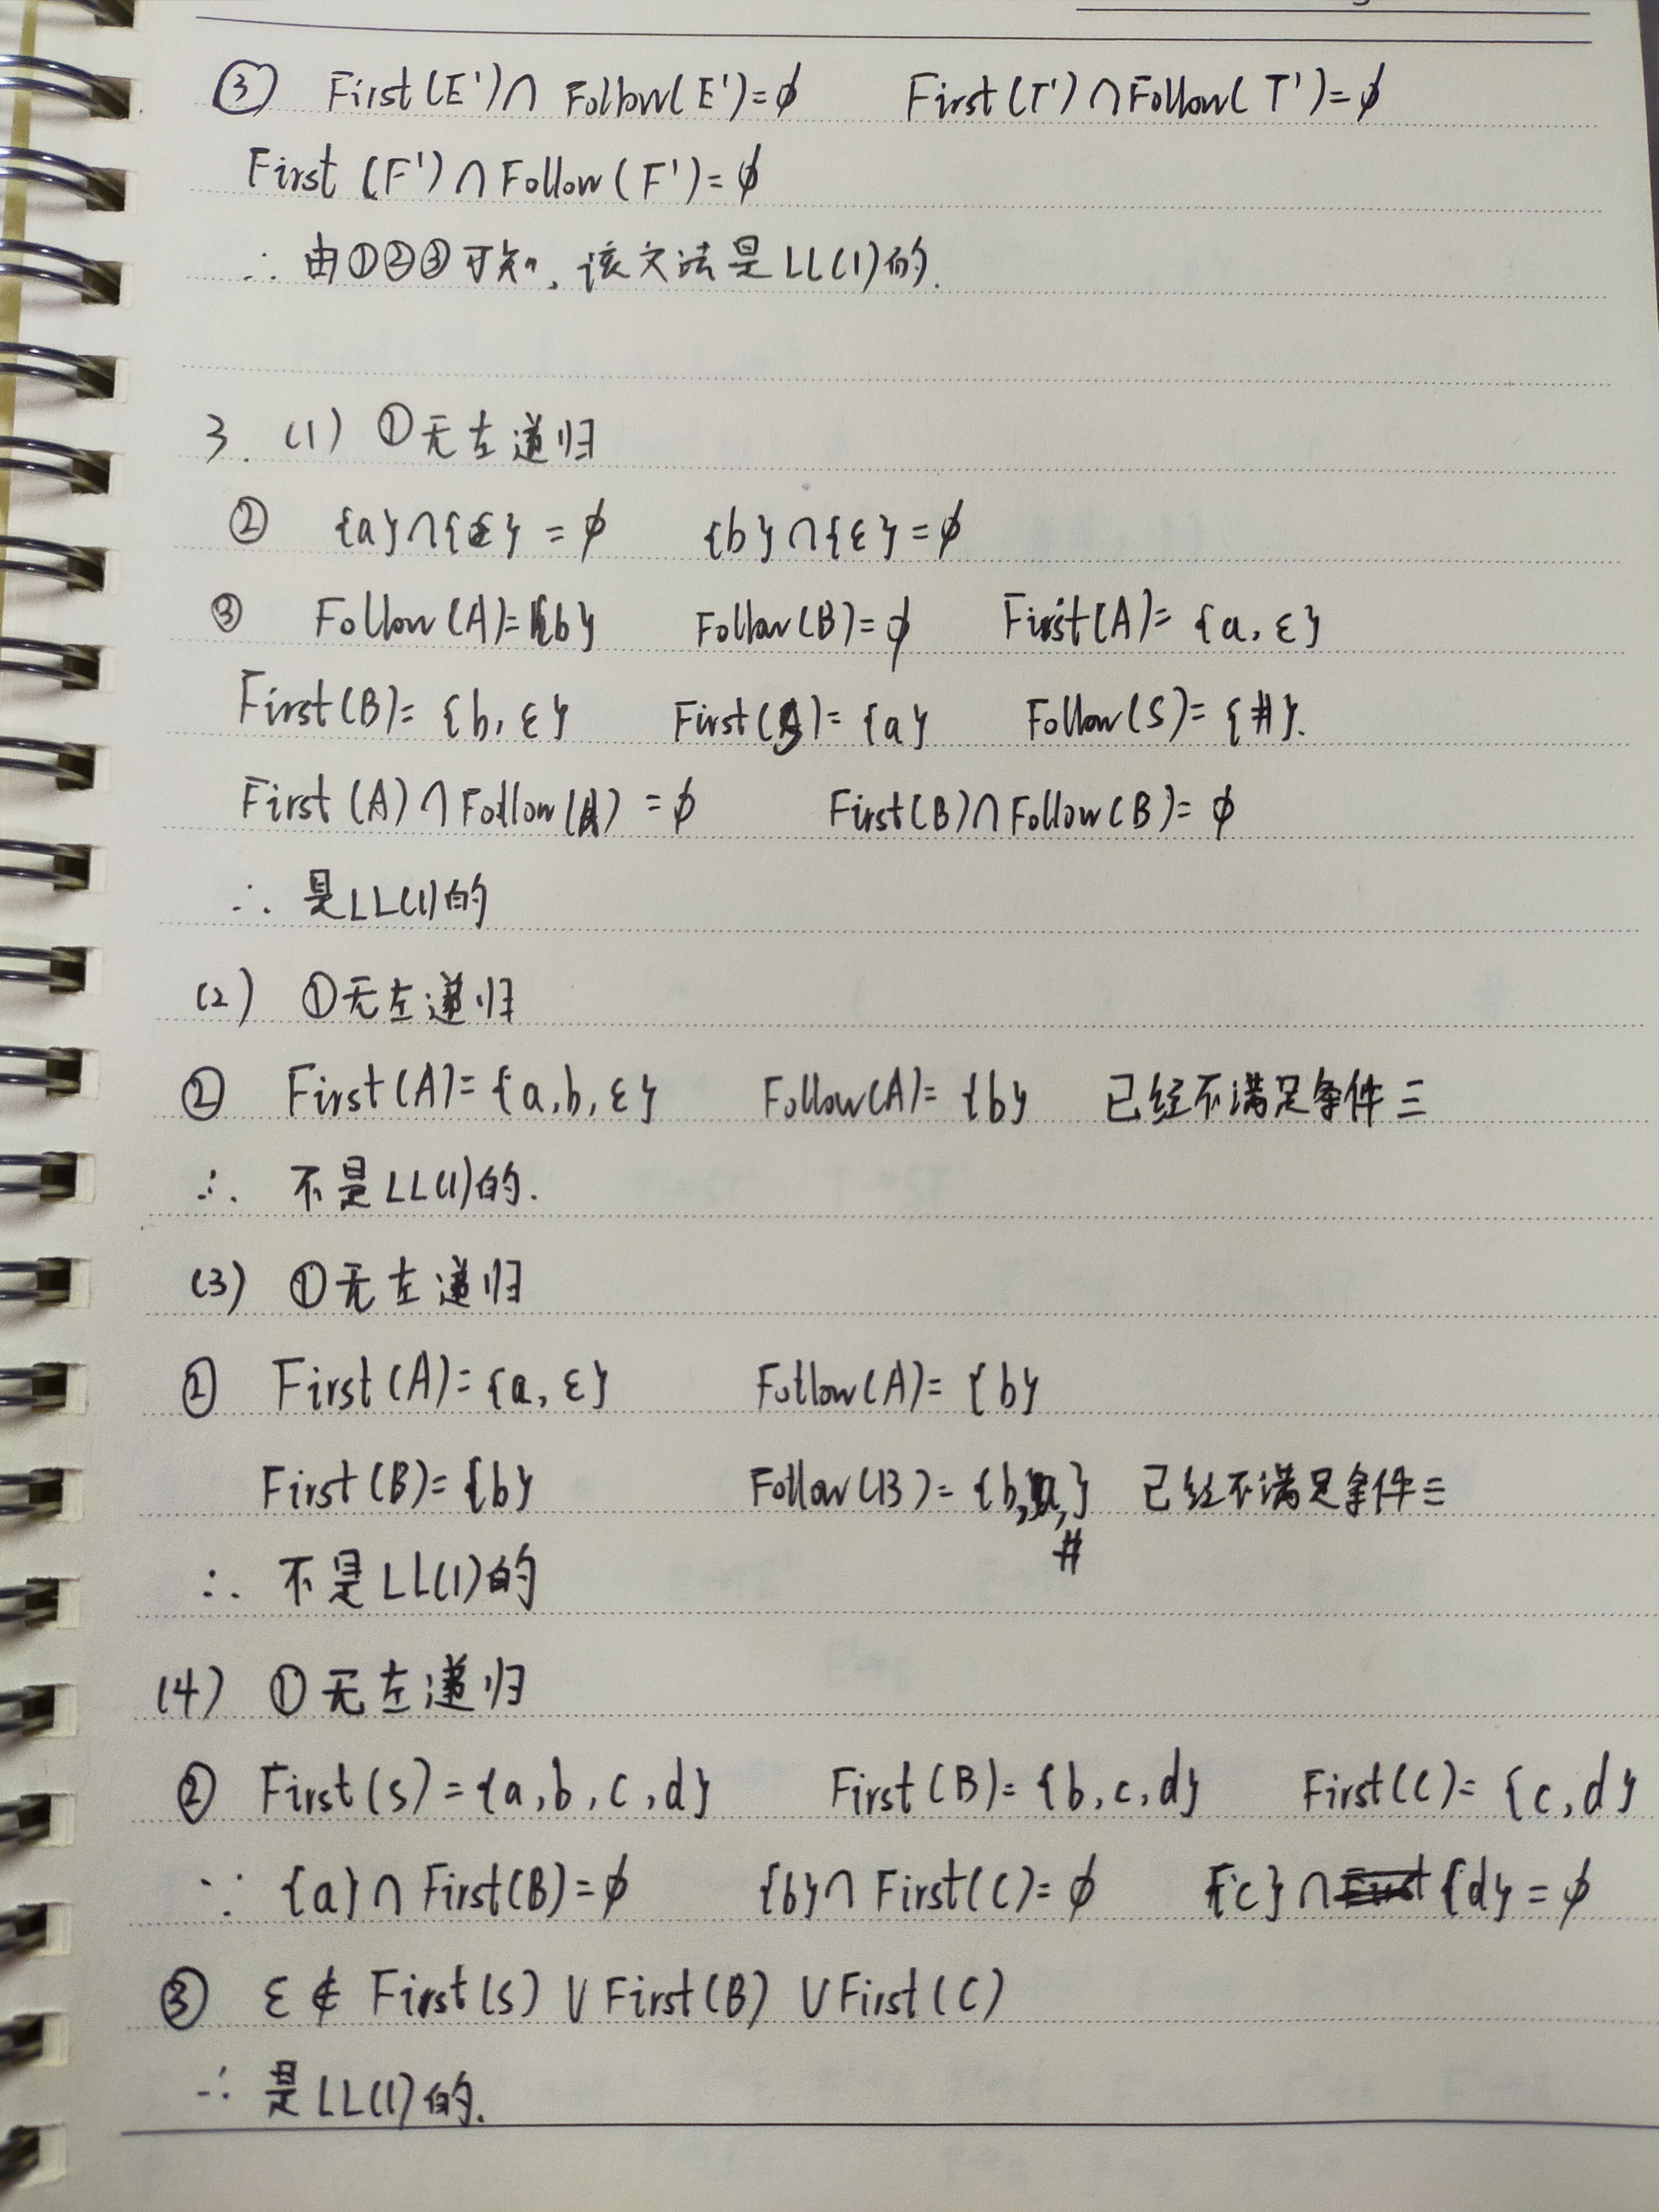 ③ First(E')∩ Follow(E')=ϕ First(T')∩Follow(T')=ϕ
First(F')∩Follow(F')=ϕ
∴ 由①②③可知,该文法是LL(1)的.
3. (1) ①无左递归
② {a}∩{ε} = ϕ {b}∩{ε}=ϕ
③ Follow(A)={b} Follow(B)=ϕ First(A)= {a, ε}
First(B)= {b, ε} First(S)= {a} Follow(S)= {#}.
First(A)∩Follow(A) = ϕ First(B)∩Follow(B)= ϕ
∴ 是LL(1)的
(2) ①无左递归
② First(A)={a,b,ε} Follow(A)= {b} 已经不满足条件三
∴ 不是LL(1)的.
(3) ①无左递归
② First(A)={a,ε} Follow(A)= {b}
First(B)={b} Follow(B)= {b,a,#} 已经不满足条件三
∴ 不是LL(1)的
(4) ①无左递归
② First(S)={a,b,c,d} First(B)={b,c,d} First(C)= {c,d}
∵ {a}∩First(B)=ϕ {b}∩First(C)=ϕ {c}∩{d}=ϕ
③ ε∉ First(S) ∪First(B) ∪First(C)
∴ 是LL(1)的.